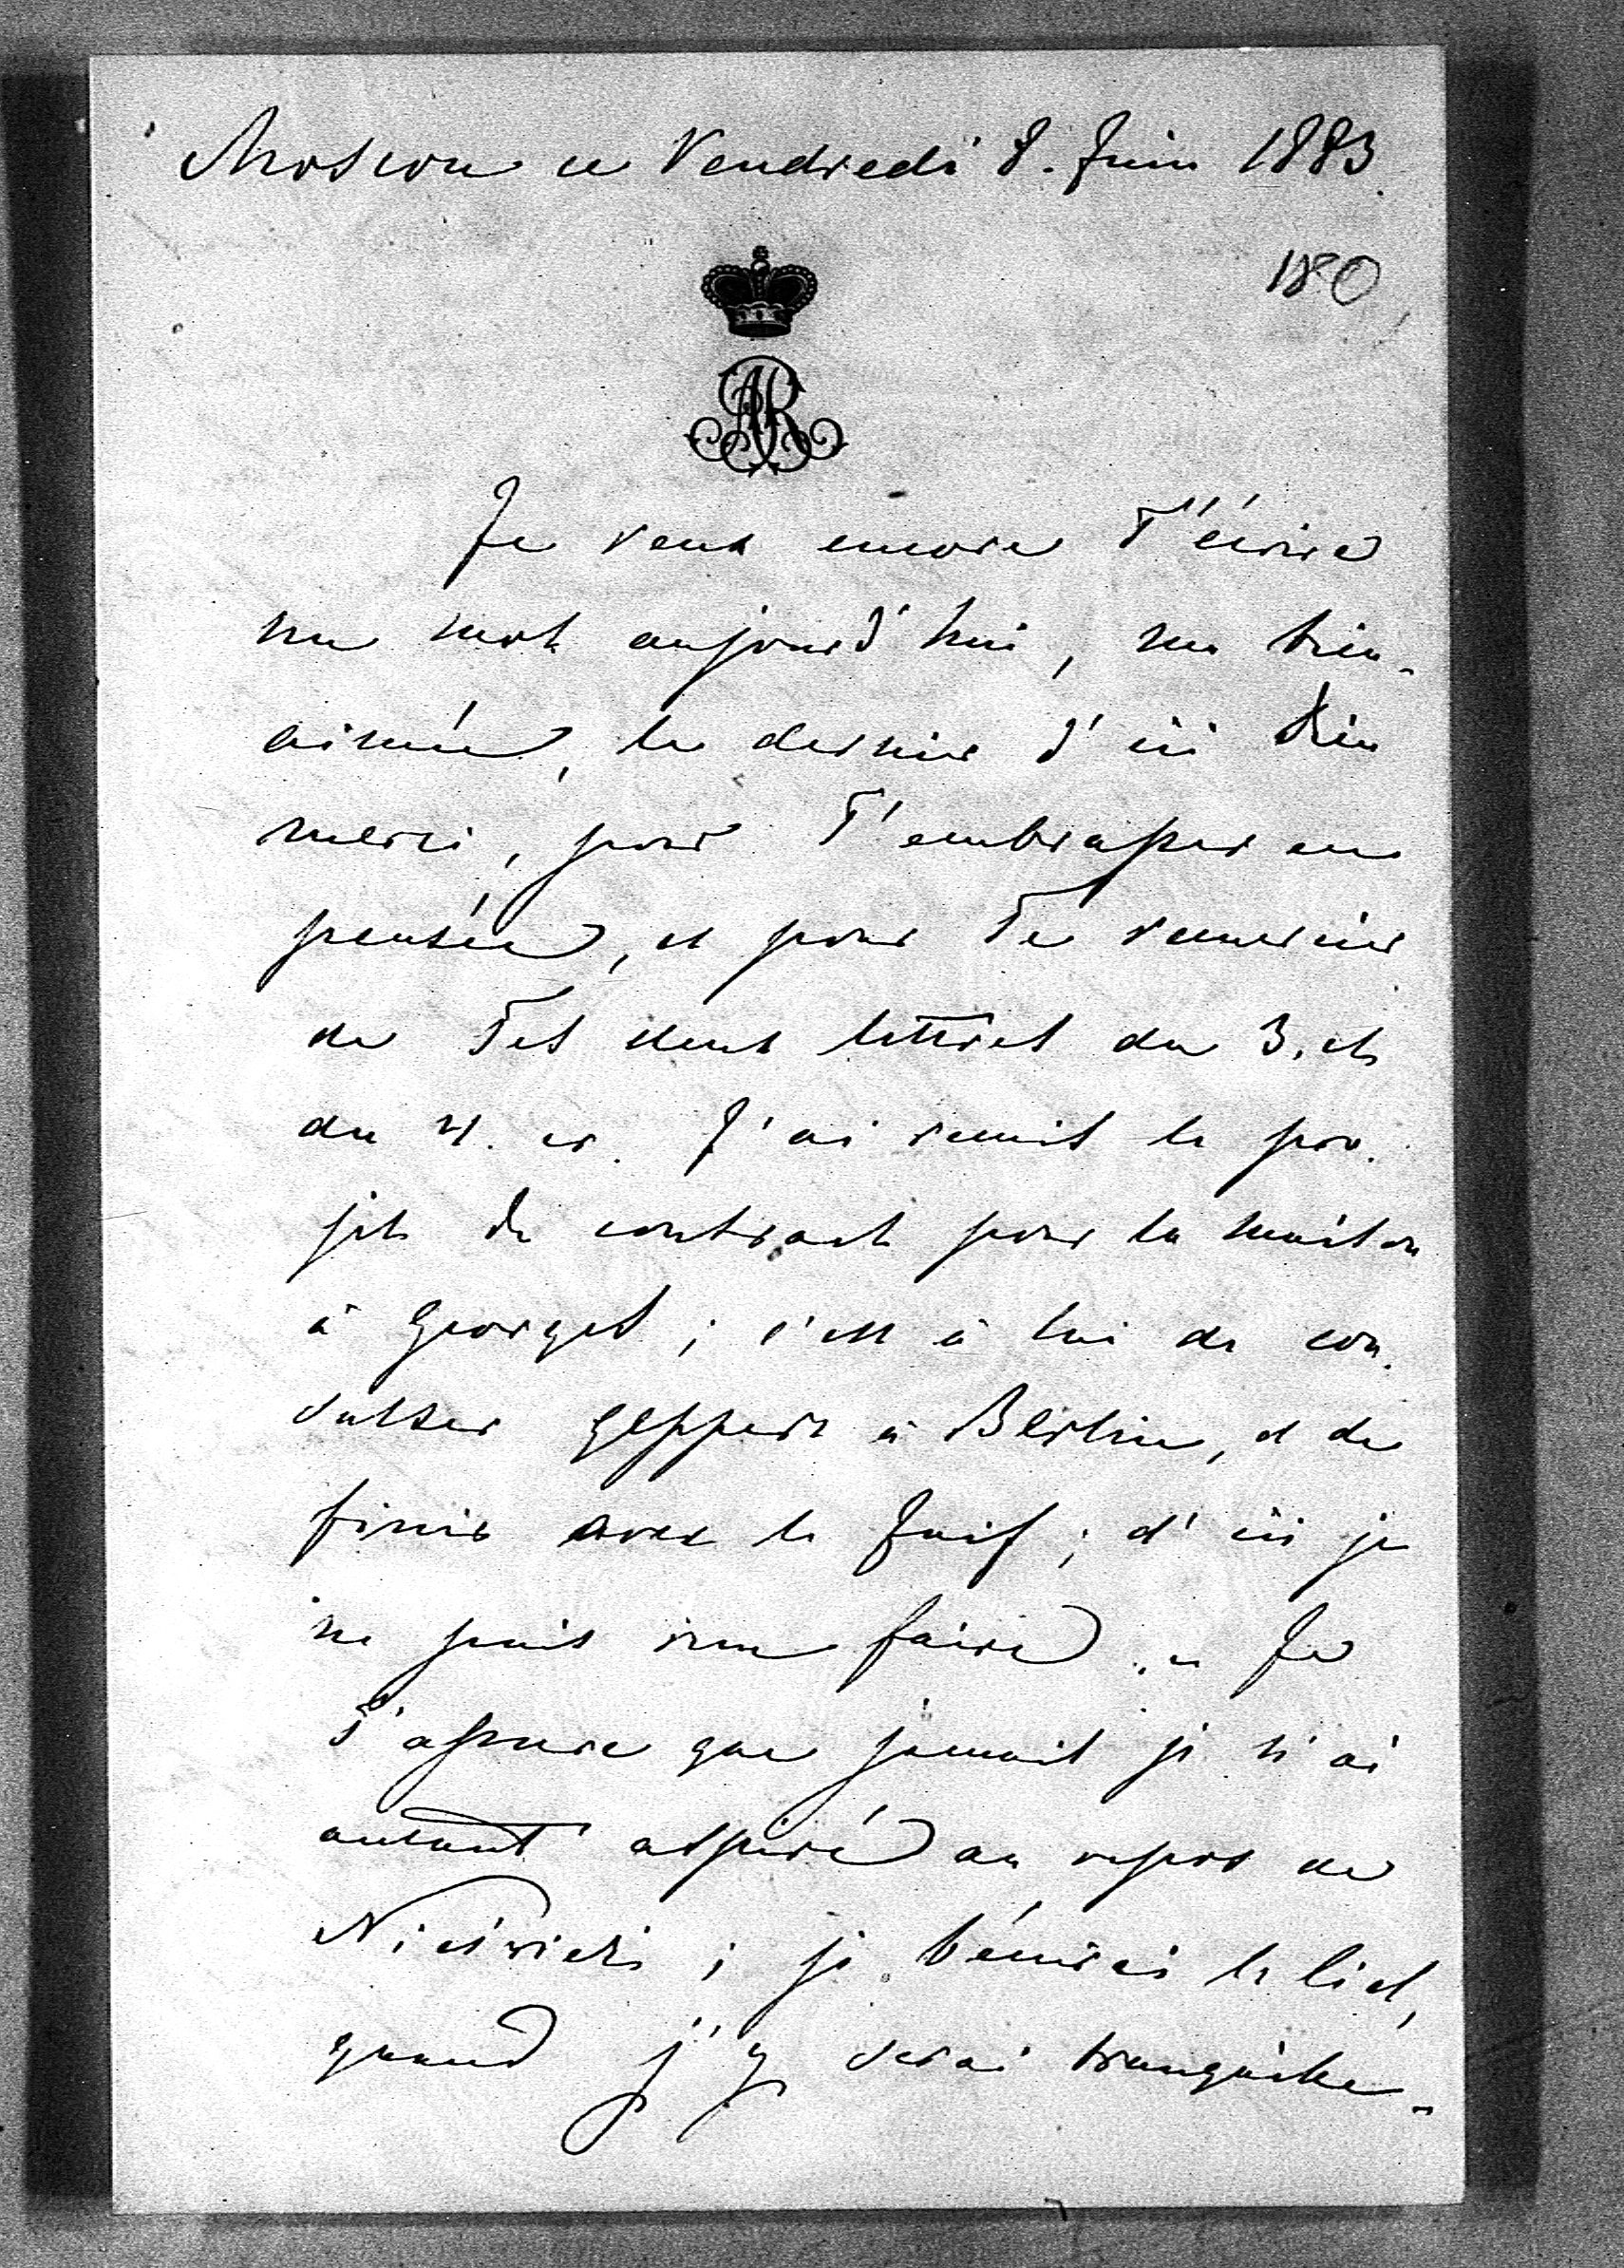 Moscou ce Vendredi 8. Juin 1883.
180
AR
Je veux encore T'écrire
un mot aujourd'hui, ma bien-
aimée, le dernier d'ici Dieu
merci, pour T'embrasser en
pensée, et pour Te remercier
de Tes deux lettres du 3. et
du 4. cr. J'ai remis le pro-
jet de contract pour la maison
à Georges; c'est à lui de con-
sulter Geppert à Berlin, et de
finir avec le Juif; d'ici je
ne puis rien faire. – Je
T'assure que jamais je n'ai
autant aspiré au repos de
Nieśwież; je bénirai le ciel,
quand j'y serai tranquille-